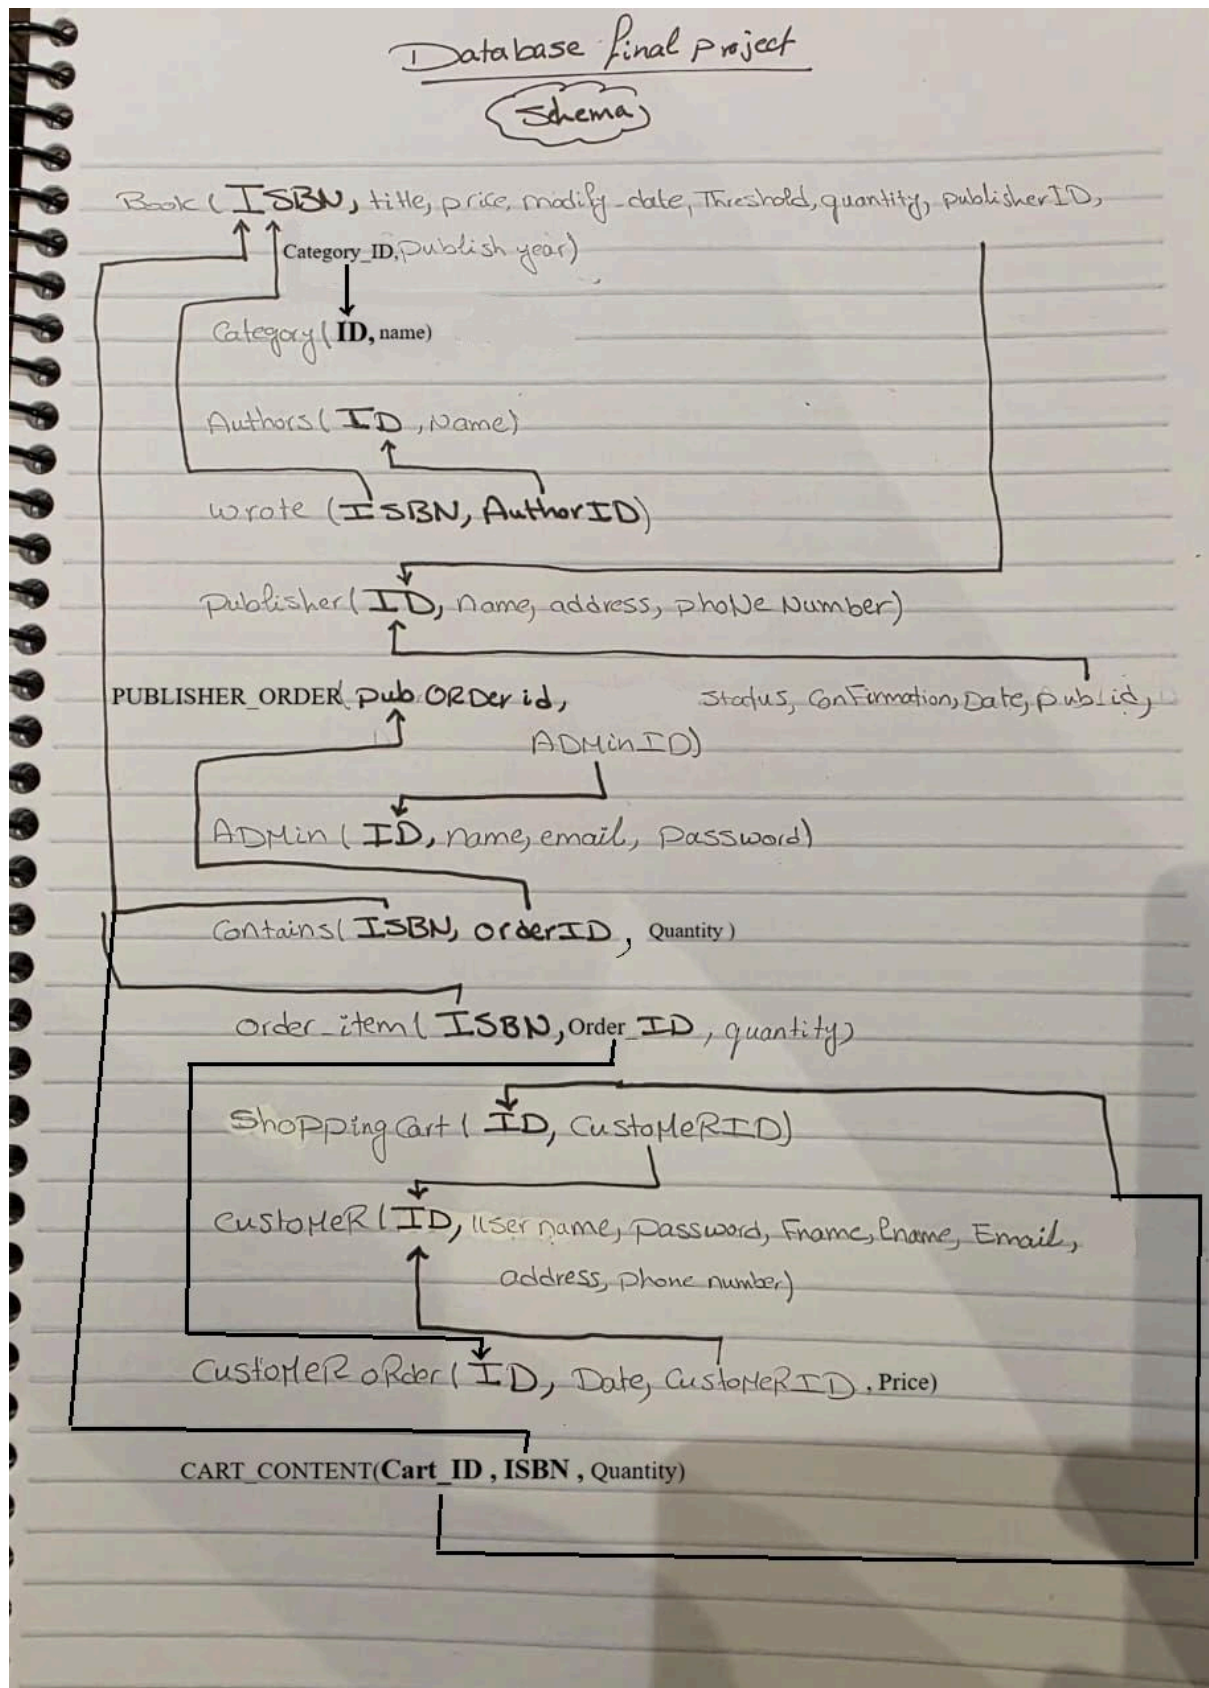 Database final project
Schema
Book (ISBN, title, price, modify_date, Threshold, quantity, publisherID,
Category_ID, publish year)
Category( ID, name)
Authors( ID , Name)
wrote (ISBN, AuthorID)
publisher( ID, name, address, phone Number)
PUBLISHER_ORDER( pub ORDer id, Status, Confirmation, Date, pub_id,
ADMinID)
ADMin ( ID, name, email, password)
Contains( ISBN, orderID , Quantity )
order_item( ISBN, Order_ID , quantity)
Shopping Cart ( ID, CustoMeRID)
CustoMeR ( ID, user name, password, Fname, Lname, Email,
address, phone number)
CustoMeR oRder ( ID, Date, CustoMeRID , Price)
CART_CONTENT(Cart_ID , ISBN , Quantity)